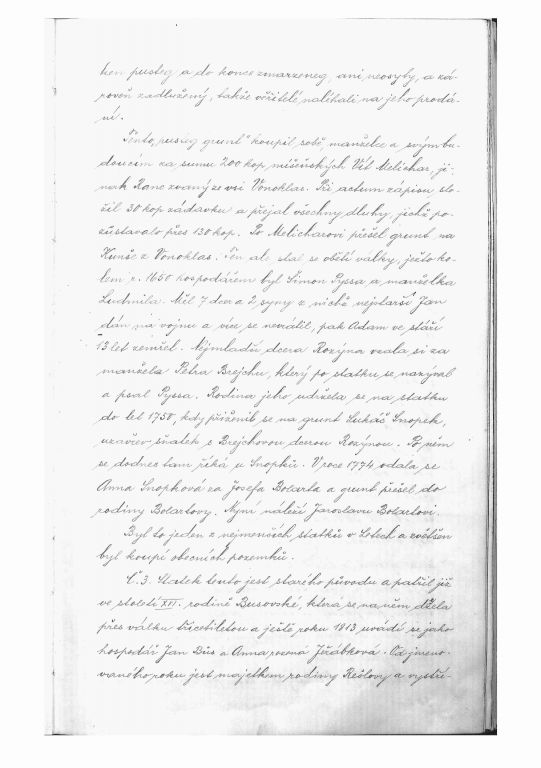 ken pusteg a do konce zmarzeneg, ani neosyby, a zá-
roveň zadlužený, takže věřitelé naléhali na jeho prodá-
ní.
Tento „pusteg grunt" koupil sobě, manželce a svým bu-
doucím za sumu 200 kop míšeňských Vít Melichar, ji-
nak Ranc zvaný ze vsi Vonoklas. Při actum zápisu slo-
žil 30 kop závdavku a přejal všechny dluhy, jichž po-
zůstavalo přes 130 kop. Po Melicharovi přešel grunt na
Kunše z Vonoklas. Ten ale stal se obětí války, ježto ko-
lem r. 1650 hospodářem byl Šimon Pyssa a manželka
Ludmila. Měl 7 dcer a 2 syny z nichž nejstarší Jan
dán na vojnu a více se nevrátil, pak Adam ve stáří
13 let zemřel. Nejmladší dcera Rozýna vzala si za
manžela Petra Brejchu, který po statku se nazýval
a psal Pyssa. Rodina jeho udržela se na statku
do let 1750, kdy přiženil se na grunt Lukáš Snopek,
uzavřev sňatek s Brejchovou dcerou Rozýnou. Po něm
se dodnes tam říká u Snopků. V roce 1774 vdala se
Anna Snopková za Josefa Bolarta a grunt přešel do
rodiny Bolartovy. Nyní náleží Jaroslavu Bolartovi.
Byl to jeden z nejmenších statků v Lotech a zvětšen
byl koupí obecních pozemků.
Č. 3. Statek tento jest starého původu a patřil již
ve století XVI. rodině Busovské, která se na něm držela
přes válku třicetiletou a ještě roku 1813 uvádí se jako
hospodář Jan Bůs a Anna rozená Jeřábková. Od jmeno-
vaného roku jest majetkem rodiny Rešlovy a vystří-